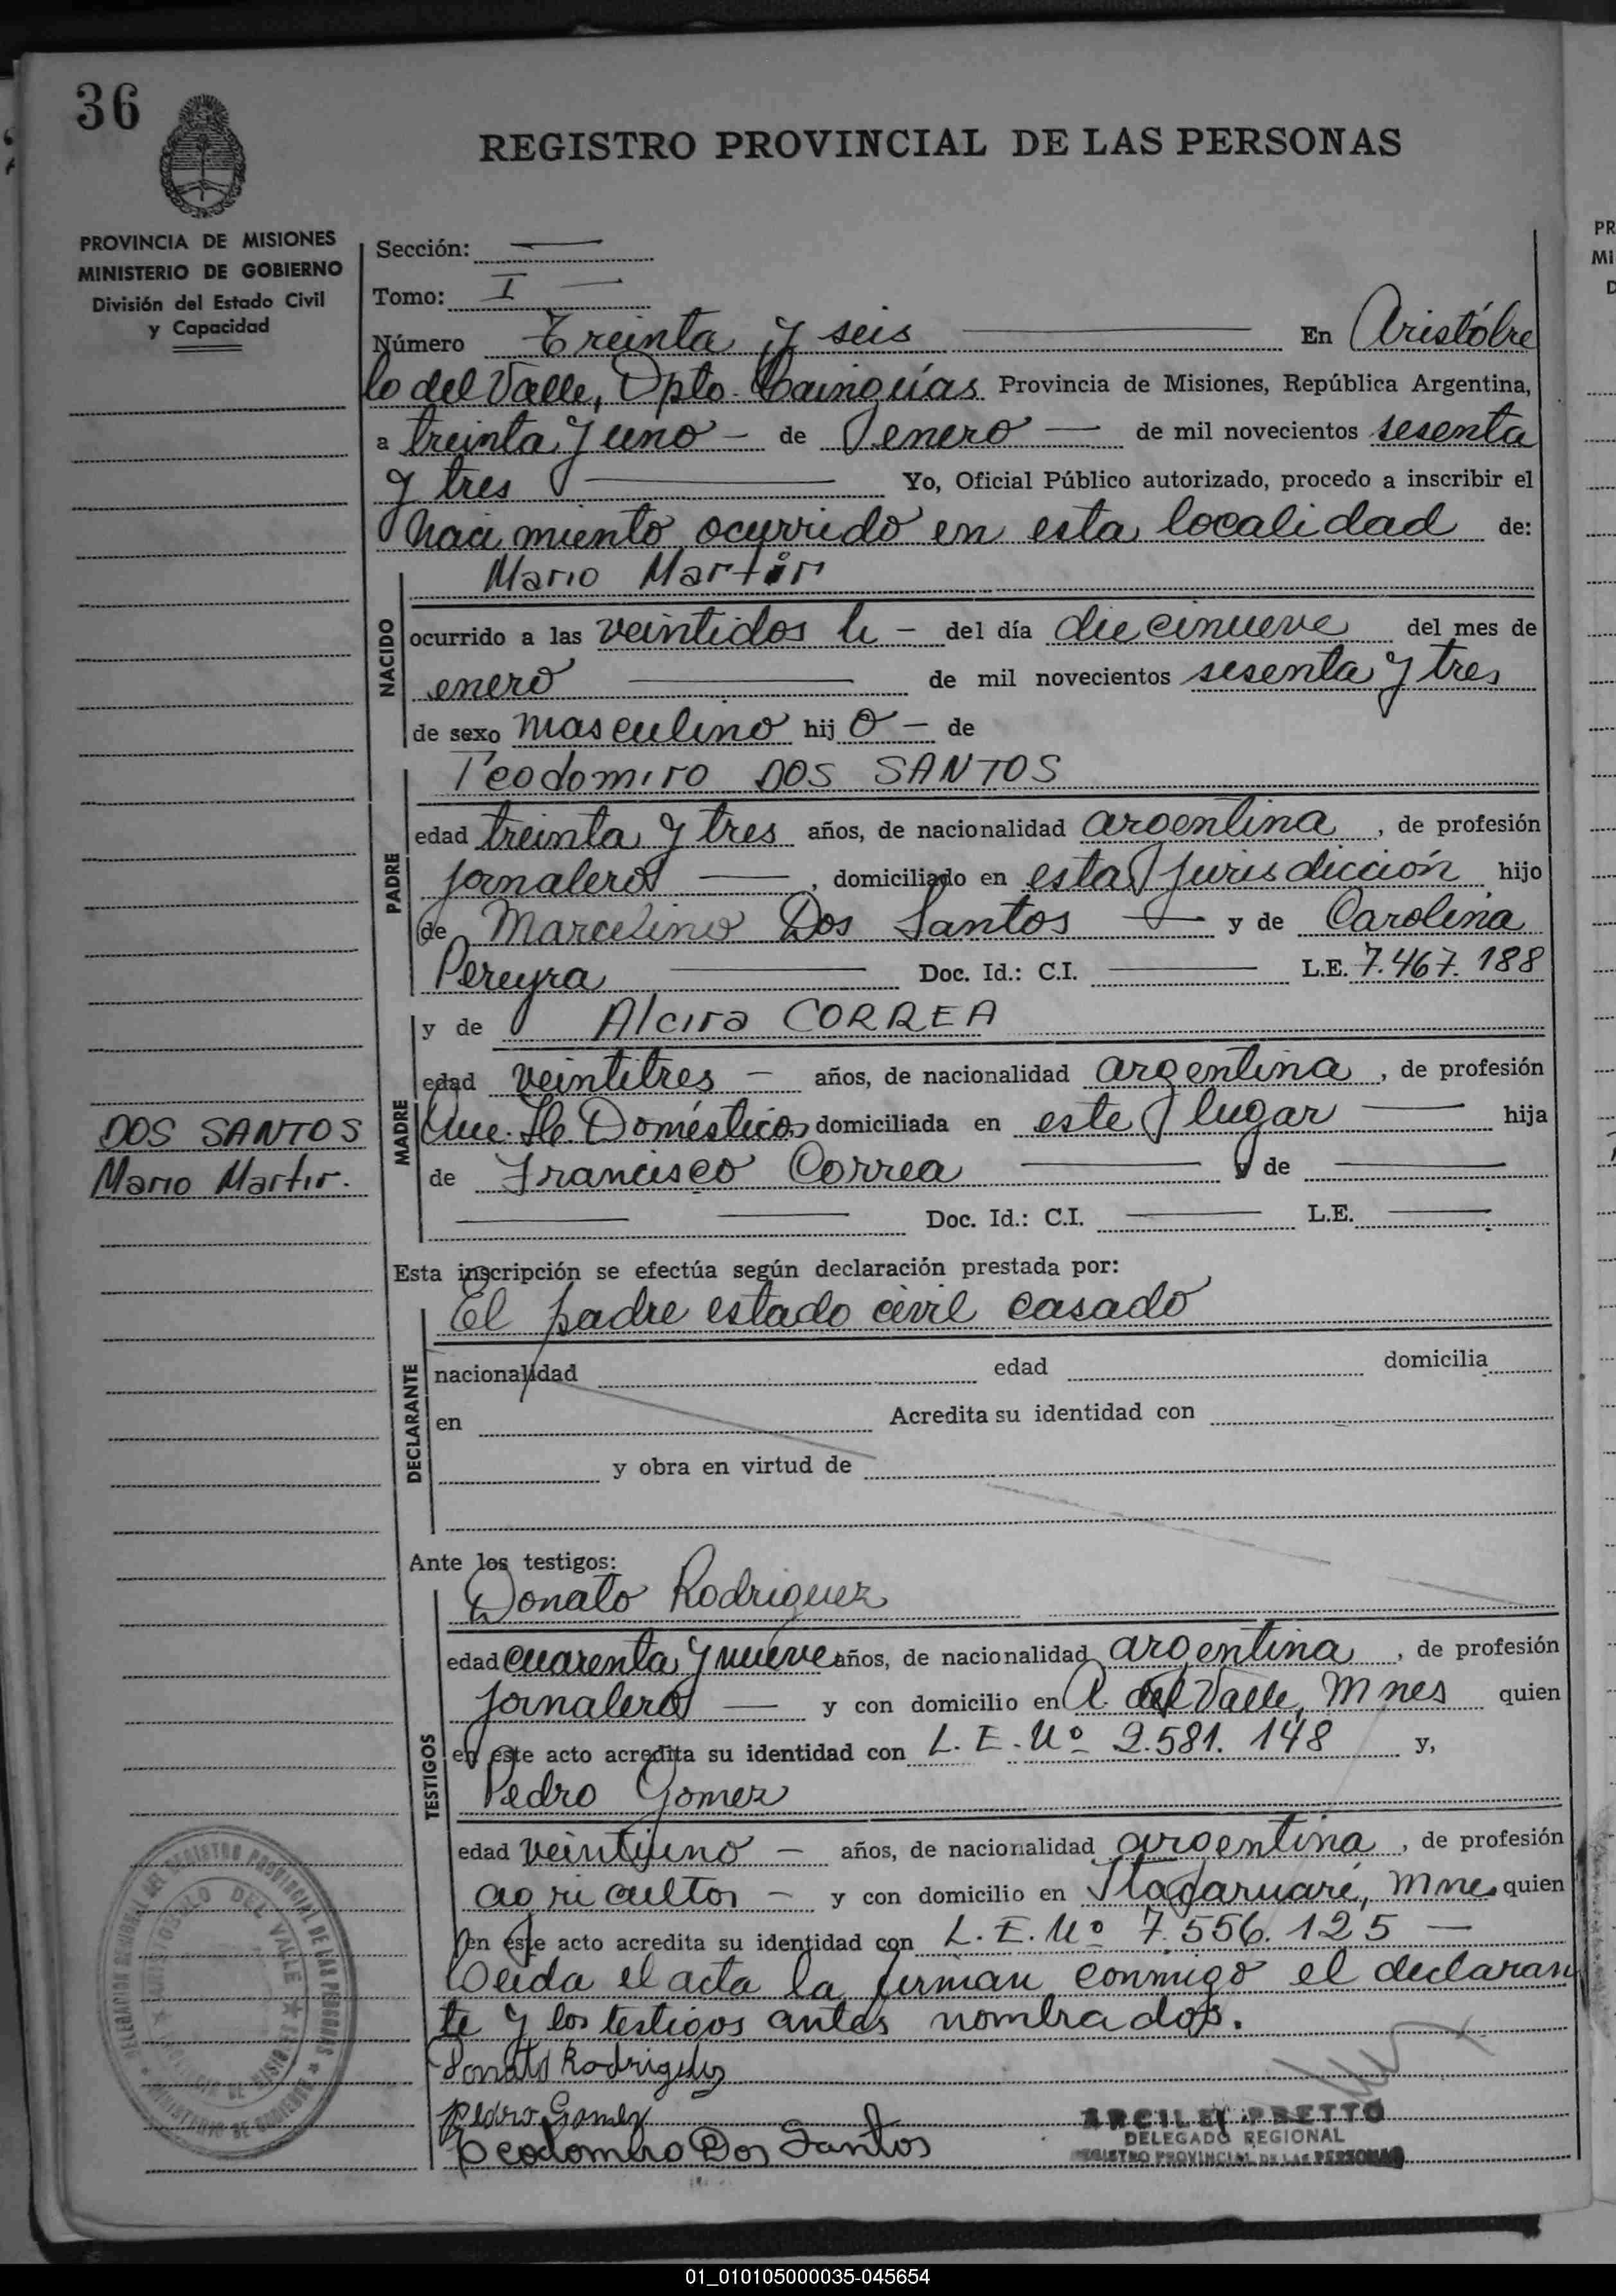 36
REGISTRO PROVINCIAL DE LAS PERSONAS
PROVINCIA DE MISIONES
MINISTERIO DE GOBIERNO
División del Estado Civil
y Capacidad
Sección:
Tomo: I
Número Treinta y seis En Aristóbu
lo del Valle, Dpto. Cainguás Provincia de Misiones, República Argentina,
a treinta y uno - de enero - de mil novecientos sesenta
y tres Yo, Oficial Público autorizado, procedo a inscribir el
Nacimiento ocurrido en esta localidad de:
NACIDO
Mario Martir
ocurrido a las veintidos h - del día diecinueve del mes de
enero de mil novecientos sesenta y tres
de sexo masculino hijo - de
PADRE
Teodomiro DOS SANTOS
edad treinta y tres años, de nacionalidad argentina, de profesión
jornalero, domiciliado en esta jurisdicción hijo
de Marcelino Dos Santos y de Carolina
Pereyra Doc. Id.: C.I. L.E. 7.467.188
MADRE
y de Alcira CORREA
edad veintitres - años, de nacionalidad argentina, de profesión
Que. He. Domésticos domiciliada en este lugar hija
de Francisco Correa y de
Doc. Id.: C.I. L.E.
DOS SANTOS
Mario Martir.
Esta inscripción se efectúa según declaración prestada por:
DECLARANTE
El padre estado civil casado
nacionalidad edad domicilia
en Acredita su identidad con
y obra en virtud de
Ante los testigos:
TESTIGOS
Donato Rodriguez
edad cuarenta y nueve años, de nacionalidad argentina, de profesión
jornalero y con domicilio en A. del Valle, Mnes quien
en este acto acredita su identidad con L. E. Nº 2.581.148 y,
Pedro Gomez
edad veintiuno - años, de nacionalidad argentina, de profesión
agricultor - y con domicilio en Itagaruaré, Mnes quien
en este acto acredita su identidad con L. E. Nº 7.556.125 -
Leida el acta la firman conmigo el declaran
te y los testigos antes nombrados.
Donato Rodriguez
Pedro Gomez
Teodomiro Dos Santos
DELEGADO REGIONAL
REGISTRO PROVINCIAL DE LAS PERSONAS
01_010105000035-045654